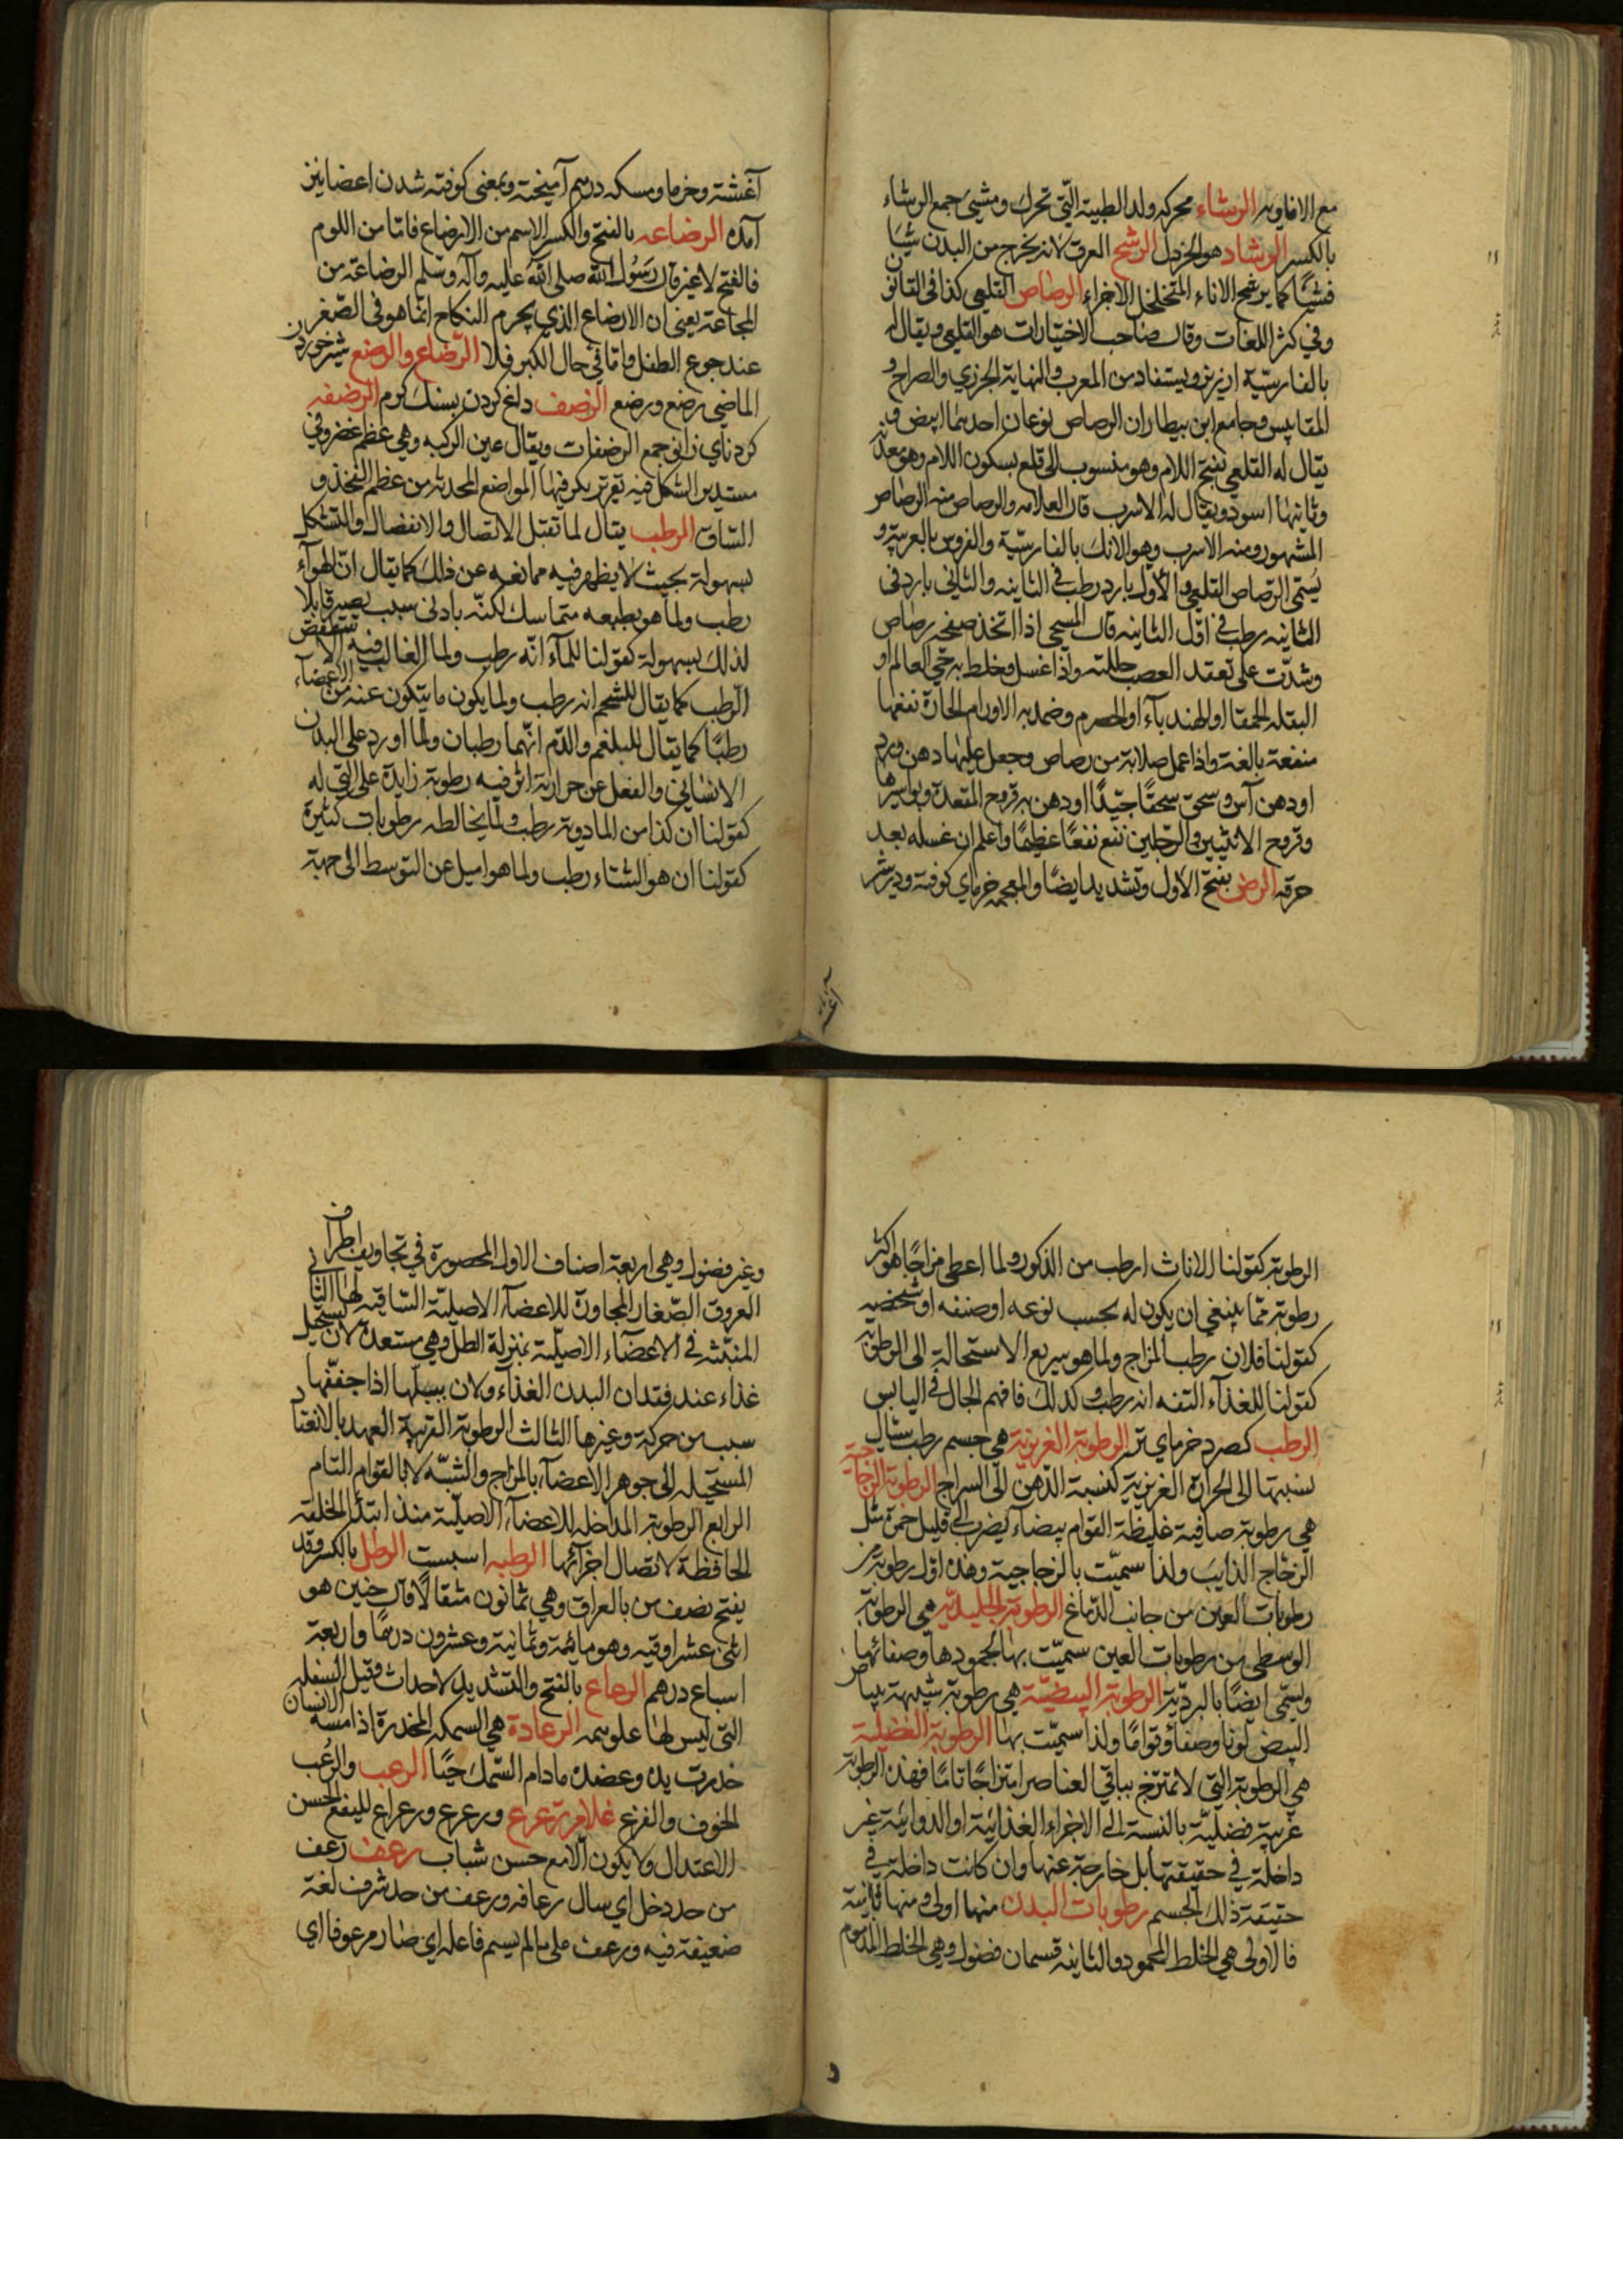 مع الافاويه الرشاء محركه ولد الظبية التي تحرك ومشيى جمع الرشاء
بالكسر الرشاد هو الخردل الرشح العرق لانه يخرج من البدن شيئا
فشيئا كما يرشح الاناء المتخلخل الاجزاء الرصاص القلعي كذا فى القانون
وفي كنز اللغات وقال صاحب الاختيارات هو القلعي ويقال له
بالفارسية ارزيز ويستفاد من المعرب والنهاية الجزري والصراح و
المقاييس وجامع ابن بيطار ان الرصاص نوعان احدهما ابيض و
يقال له القلعي بفتح اللام وهو منسوب الى قلع بسكون اللام وهو معدنه
وثانيهما اسود ويقال له الاسرب قال العلامه والرصاص منه الرصاص
المشهور ومنه الاسرب وهو الانك بالفارسية والفرس بالعربية و
يسمى الرصاص القلعي والاول بارد رطب في الثانيه والثاني بارد فى
الثانيه رطب في اول الثانيه قال المسيحي اذا اتخذ صفيحه رصاص
وشدت على تعقد العصب حللته واذا غسل وخلط به حي العالم او
البقله الحمقا او الهندباء او الحصرم وضمد به الاورام الحارة نفعها
منفعة بالغة واذا عمل صلابة من رصاص وجعل عليها دهن ورد
او دهن آس وسحق سحقا جيدا او دهن به قروح المقعدة وبواسيرها
وقروح الانثيين والرجلين نفع نفعا عظيما واعلم ان غسله بعد
حرقه الرض بفتح الاول وتشديد ايضا والمعجمه خرماى كوفته ودر شير
آغشته
آغشته وخرما ومسكه درهم آميخته وبمعنى كوفته شدن اعضا نيز
آمده الرضاعه بالفتح والكسر الاسم من الارضاع فاما من اللوم
فالفتح لا غير قال رسول الله صلى الله عليه وآله وسلم الرضاعة من
المجاعة يعنى ان الارضاع الذي يحرم النكاح انما هو فى الصغر
عند جوع الطفل واما في حال الكبر فلا الرضاع والرضع شير خوردن
الماضي رضع ورضع الرضف داغ كردن بسنك كرم الرضفه
كردناى زانو جمع الرضفات ويقال عين الركبه وهي عظم غضروفي
مستدير الشكل فيه تقعير يكر فيها المواضع المحدبه من عظم الفخذ و
الساق الرطب يقال لما تقبل الاتصال والانفصال والتشكل
بسهولة بحيث لا يظهر فيه ممانعه عن ذلك كما يقال ان الهوآء
رطب ولما هو بطبعه متماسك لكنه بادنى سبب يصير قابلا
لذلك بسهولة كقولنا للمآء انه رطب ولما الغالب فيه الاسطقس
الرطب كما يقال للشحم انه رطب ولما يكون ما يتكون عنه من الاعضآء
رطبا كما يقال للبلغم والدم انهما رطبان ولما اورد على البدن
الانسانى وانفعل عن حرارته اثر فيه رطوبة زايدة على التي له
كقولنا ان كذا من الادويه رطب ولما يخالطه رطوبات كثيرة
كقولنا ان هوا الشتاء رطب ولما هو اميل عن التوسط الى جهة
الرطوبة كقولنا للاناث ارطب من الذكور ولما اعطى مزاجا هو اكثر
رطوبة مما ينبغي ان يكون له بحسب نوعه او صنفه او شخصه
كقولنا فلان رطب المزاج ولما هو سريع الاستحالة الى الرطوبة
كقولنا للغذآء التفه انه رطب وكذلك فافهم الحال فى اليابس
الرطب كصرد خرماى تر الرطوبة الغريزية هي جسم رطب سيال
نسبتها الى الحرارة الغريزية كنسبة الدهن الى السراج الرطوبة الزجاجية
هي رطوبة صافية غليظة القوام بيضاء يضرب الى قليل حمرة مثل
الزجاج الذايب ولذا سميت بالزجاجية وهذه اول رطوبة من
رطوبات العين من جانب الدماغ الرطوبة الجليدية هي الرطوبة
الوسطى من رطوبات العين سميت بها لجمودها وصفائها
وتسمى ايضا بالبردية الرطوبة البيضية هي رطوبة شبيهة ببياض
البيض لونا وصفاء وقواما ولذا سميت بها الرطوبة الفضلية
هي الرطوبة التي لا تمتزج بباقي العناصر امتزاجا تاما فهذه الرطوبة
غريبة فضلية بالنسبة الى الاجزاء الغذائية او الدوائية غير
داخلة في حقيقتها بل خارجة عنها وان كانت داخلة في
حقيقة ذلك الجسم رطوبات البدن منها اولى ومنها ثانية
فالاولى هي الخلط المحمود والثانيه قسمان فضول وهي الخلط المذموم
وغير فضول وهي اربعة اصناف الاول المحصورة في تجاويف اطراف
العروق الصغار المجاورة للاعضآء الاصلية الساقيه لها الثانى
المنبثه في الاعضآء الاصلية بمنزلة الطل وهي مستعدة لان يستحيل
غذاء عند فقدان البدن الغذآء ولان يبلها اذا جففها
سبب من حركة وغيرها الثالث الرطوبة القريبة العهد بالانعقاد
المستحيله الى جوهر الاعضآء بالمزاج والشبه لا بالقوام التام
الرابع الرطوبة المداخله للاعضآء الاصلية منذ ابتدا الخلقه
الحافظة لاتصال اجزآئها الرطبه اسبست الرطل بالكسر وقد
يفتح نصف من بالعراق وهي ثمانون مثقالا قال حنين هو
اثنى عشر اوقيه وهو مائة وثمانية وعشرون درهما واربعة
اسباع درهم الرعاع بالفتح والتشديد لاحداث وقيل السفله
التي ليس لها علو همه الرعادة هي السمكه المخدرة اذا مسه الانسان
خدرت يده وعضده ما دام السمك حيا الرعب والرعب
الخوف والفزع غلام ترعرع ورعرع ورعراع لليفع الحسن
الاعتدال ولا يكون الا مع حسن شباب رعف رعف
من حد دخل اي سال رعافه ورعف من حد شرف لغة
ضعيفة فيه ورعف على ما لم يسم فاعله اي صار مرعوفا اى